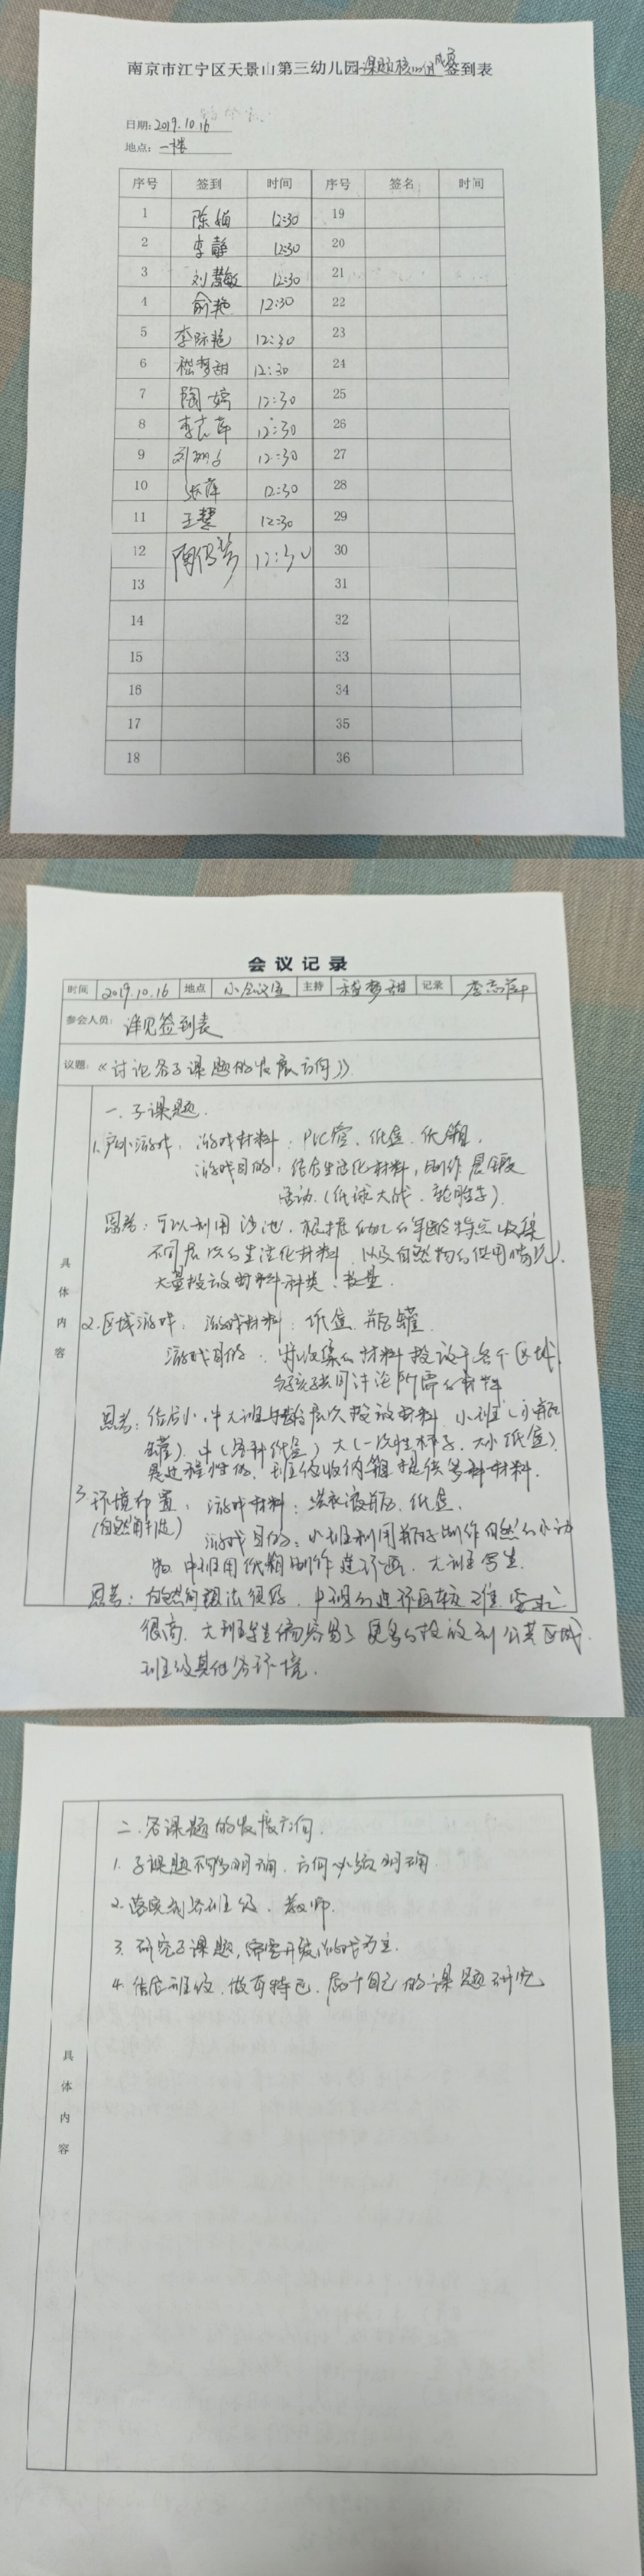 南京市江宁区天景山第三幼儿园课题核心组成员签到表
日期: 2019.10.16
地点: 一楼
序号 签到 时间 序号 签名 时间
1 陈娟 12:30 19
2 李静 12:30 20
3 刘慧敏 12:30 21
4 俞艳 12:30 22
5 李际艳 12:30 23
6 嵇梦甜 12:30 24
7 陶婷 12:30 25
8 李志萍 12:30 26
9 刘 12:30 27
10 张萍 12:30 28
11 王慧 12:30 29
12 陶 12:30 30
13 31
14 32
15 33
16 34
17 35
18 36
会议记录
时间 2019.10.16 地点 小会议室 主持 嵇梦甜 记录 李志萍
参会人员: 详见签到表
议题: 《讨论各子课题的发展方向》
具体内容
一、子课题.
1.户外游戏. 游戏材料: PVC管、纸盒、纸箱.
游戏目的: 结合生活化材料,制作晨锻
活动.(纸球大战、轮胎车).
思考: 可以利用沙池. 根据幼儿的年龄特点收集
不同层次的生活化材料. 以及自然物的使用情况.
大量投放材料种类、数量.
2.区域游戏: 游戏材料: 纸盒、瓶罐
游戏目的: 将收集的材料投放于各个区域.
与孩子共同讨论所需的材料
思考: 结合小、中大班年龄层次投放材料. 小班(瓶
罐). 中(各种纸盒) 大(一次性杯子、大小纸盒)
是过程性的. 班级收纳箱提供各种材料.
3.环境布置: 游戏材料: 洗衣液瓶、纸盒.
(自然角打造) 游戏目的: 小班利用瓶子制作自然的小动
物. 中班用纸箱制作连环画. 大班写生.
思考: 自然角想法很好. 中班的连环画较难. 要求
很高. 大班写生偏容易了 更多的投放到公共区域.
班级其他各环境.
具体内容
二.各课题的发展方向.
1. 子课题不够明确. 方向必须明确
2.落实到各班级、教师.
3. 研究子课题,需要开放游戏为主.
4.结合班级. 做有特色. 属于自己的课题研究